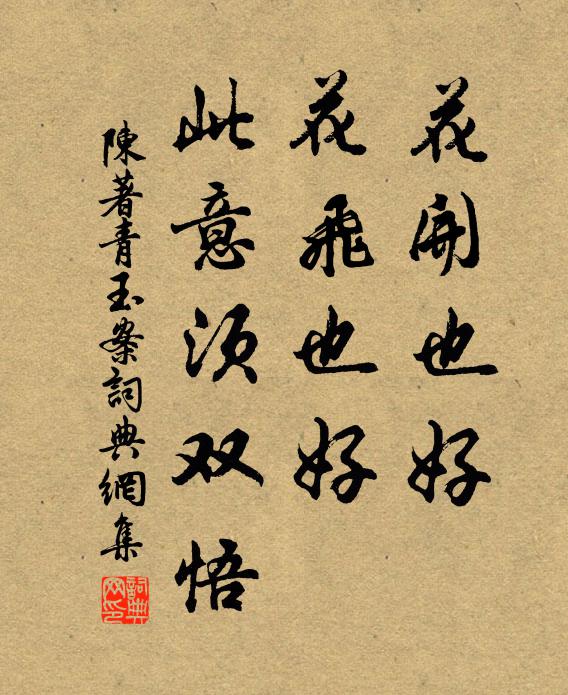 花開也好
花飛也好
此意須双悟
陳著青玉案詞典網集
詞典
网印